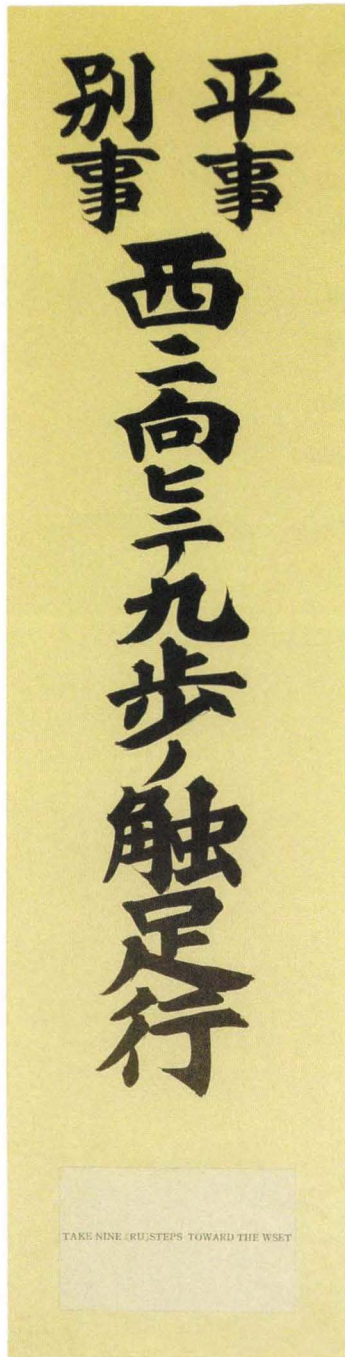 平事
別事
西ニ向ヒテ九歩ノ触足行
TAKE NINE (RU)STEPS TOWARD THE WSET